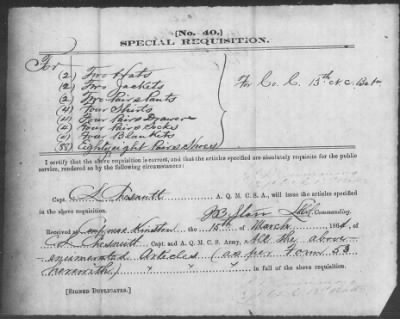 [No. 40.]
SPECIAL REQUISITION.
For
(2) Two Hats
(2) Two Jackets
(2) Two Pairs Pants
(4) Four Shirts
(4) Four Pairs Drawers
(4) Four Pairs Socks
(4) Four Blankets
(88) Eighty eight Pairs Shoes
For Co. C. 13th N.C. Bat
I certify that the above requisition is correct, and that the articles specified are absolutely requisite for the public
service, rendered so by the following circumstances:
Capt. A. Q. M. C. S. A., will issue the articles specified
in the above requisition.
Commanding.
Received at Camp near Kinston the 15th of March 1864, of
Capt. and A. Q. M. C. S. Army, all the above
enumerated Articles (as per Form 53
herewith) " " " in full of the above requisition.
[SIGNED DUPLICATES.]